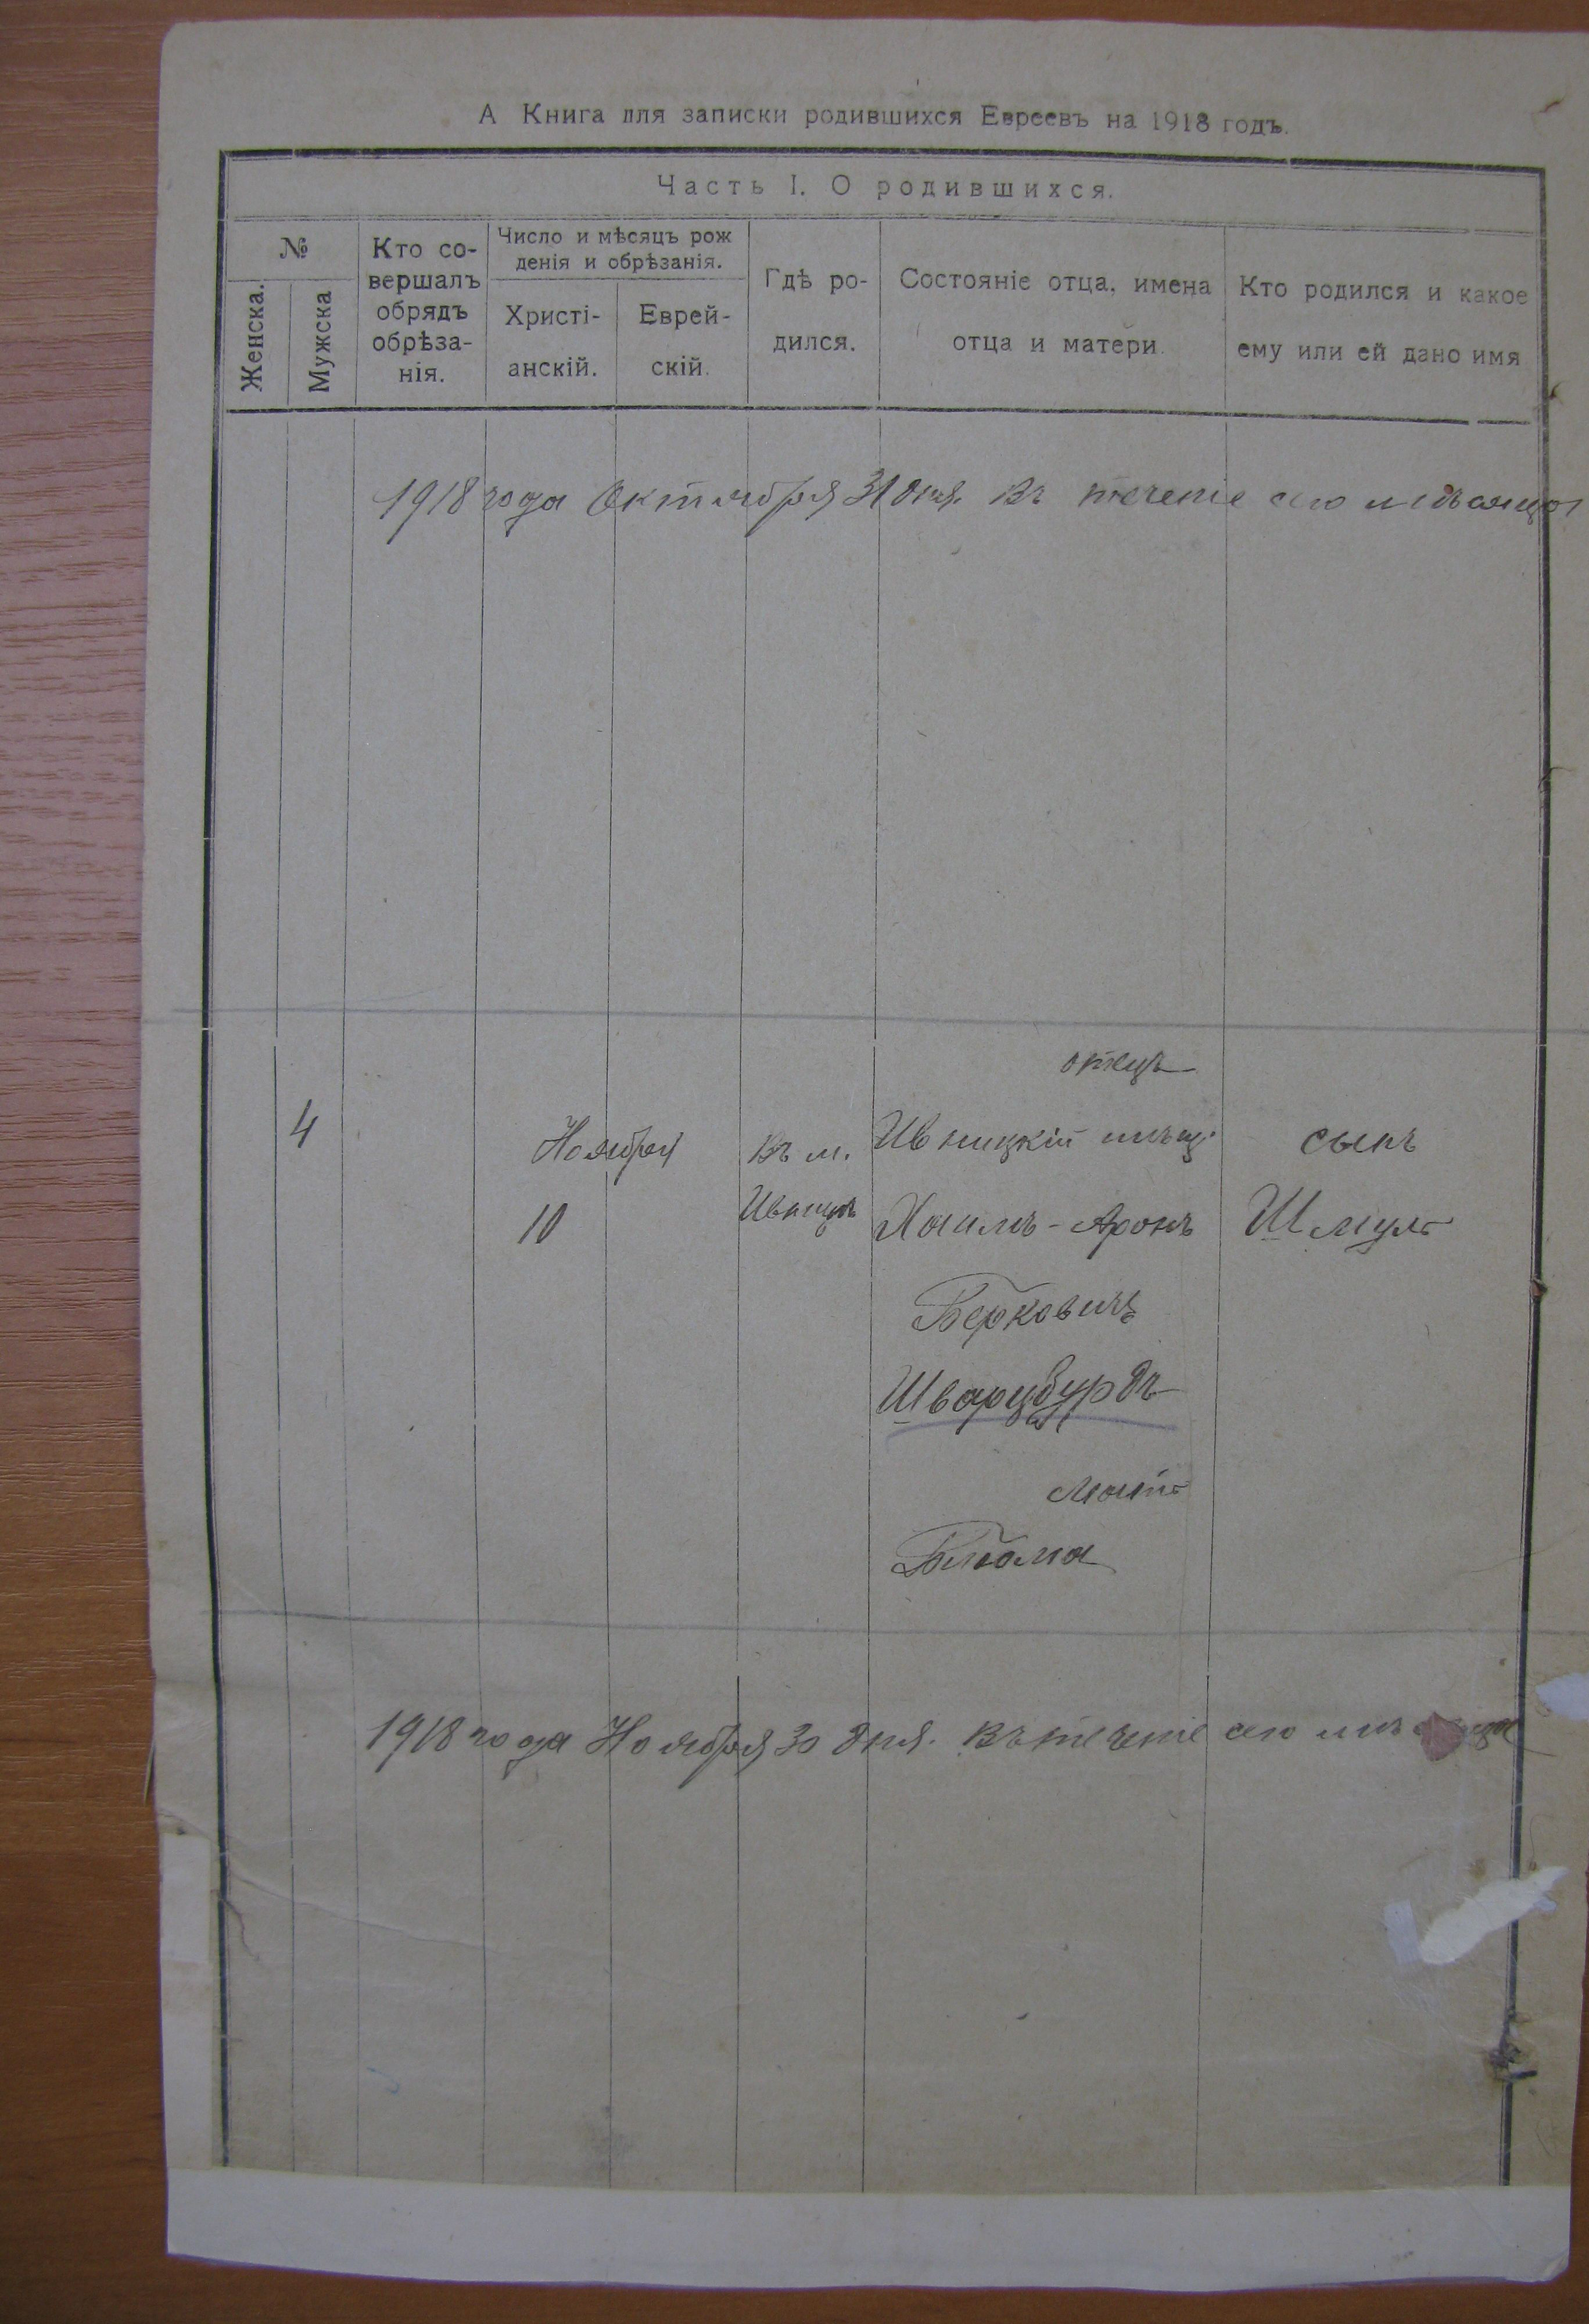 А Книга для записки родившихся Евреевъ на 1918 годъ.
Часть I. О родившихся.
№
Женска.
Мужска
Кто со-
вершалъ
обрядъ
обрѣза-
нія.
Число и мѣсяцъ рож
денія и обрѣзанія.
Христі-
анскій.
Еврей-
скій.
Гдѣ ро-
дился.
Состояніе отца, имена
отца и матери.
Кто родился и какое
ему или ей дано имя
1918 года Октября 31 дня. Въ теченіе сего мѣсяца
отецъ
4 Ноября Въ м. Ивницкій мѣщ. сынъ
10 Ивницѣ Хаимъ-Аронъ Шмуль
Берковичъ
Шварцбурдъ
Мать
Блюма
1918 года Ноября 30 дня. Въ теченіе сего мѣсяца